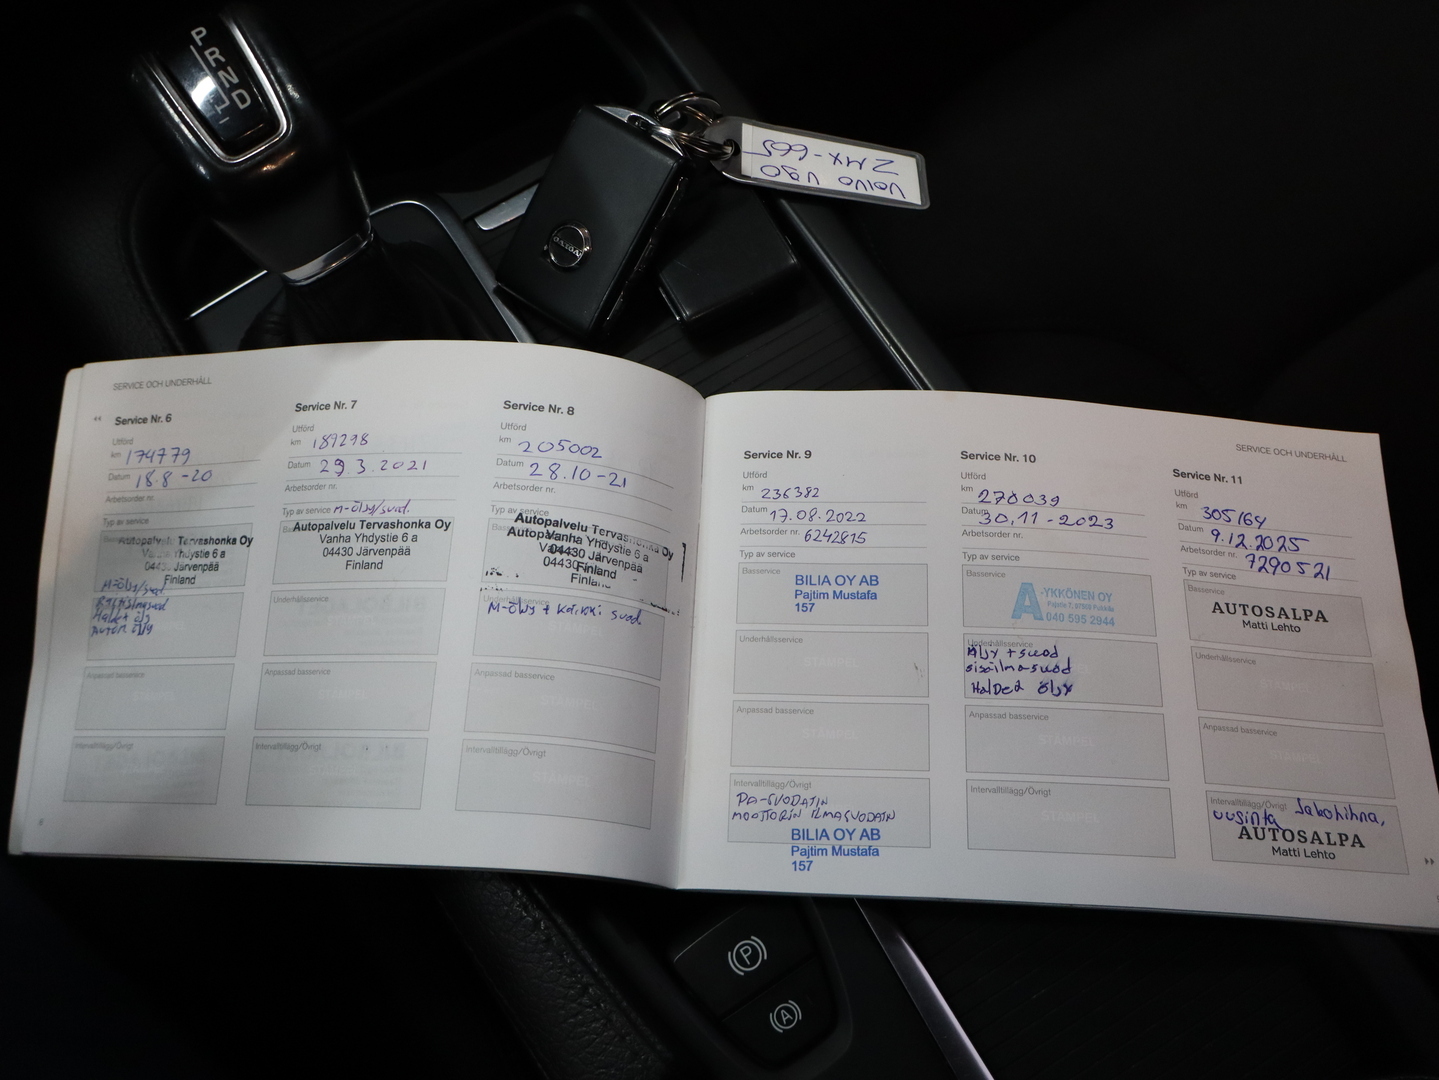 P
R
N
D
VOLVO
Volvo V90
ZMX-665
SERVICE OCH UNDERHÅLL
Service Nr. 6
Utförd
km 174779
Datum 18.8-20
Arbetsorder nr.
Typ av service
Autopalvelu Tervashonka Oy
Vanha Yhdystie 6 a
04430 Järvenpää
Finland
M-öljy/suod
Anpassad basservice
Intervalltillägg/Övrigt
6
Service Nr. 7
Utförd
km 189298
Datum 29 3.2021
Arbetsorder nr.
Typ av service M-öljy/suod.
Autopalvelu Tervashonka Oy
Vanha Yhdystie 6 a
04430 Järvenpää
Finland
Underhållsservice
Anpassad basservice
STÄMPEL
Intervalltillägg/Övrigt
Service Nr. 8
Utförd
km 205002
Datum 28.10-21
Arbetsorder nr.
Typ av service
Autopalvelu Tervashonka Oy
Vanha Yhdystie 6 a
04430 Järvenpää
Finland
Underhållsservice
M-öljy + kaikki suod.
Anpassad basservice
STÄMPEL
Intervalltillägg/Övrigt
STÄMPEL
Service Nr. 9
Utförd
km 236382
Datum 17.08.2022
Arbetsorder nr. 6242815
Typ av service
Basservice
BILIA OY AB
Pajtim Mustafa
157
Underhållsservice
STÄMPEL
Anpassad basservice
STÄMPEL
Intervalltillägg/Övrigt
PA-SUODATIN
MOOTTORIN ILMASUODATIN
BILIA OY AB
Pajtim Mustafa
157
Service Nr. 10
Utförd
km 270039
Datum 30.11-2023
Arbetsorder nr.
Typ av service
Basservice
A-YKKÖNEN OY
040 595 2944
Underhållsservice
öljy + suod
sisäilmasuod
Haldex öljy
Anpassad basservice
STÄMPEL
Intervalltillägg/Övrigt
STÄMPEL
SERVICE OCH UNDERHÅLL
Service Nr. 11
Utförd
km 305164
Datum 9.12.2025
Arbetsorder nr. 7290521
Typ av service
Basservice
AUTOSALPA
Matti Lehto
Underhållsservice
STÄMPEL
Anpassad basservice
STÄMPEL
Intervalltillägg/Övrigt Jakohihna,
uusinta
AUTOSALPA
Matti Lehto
P
A